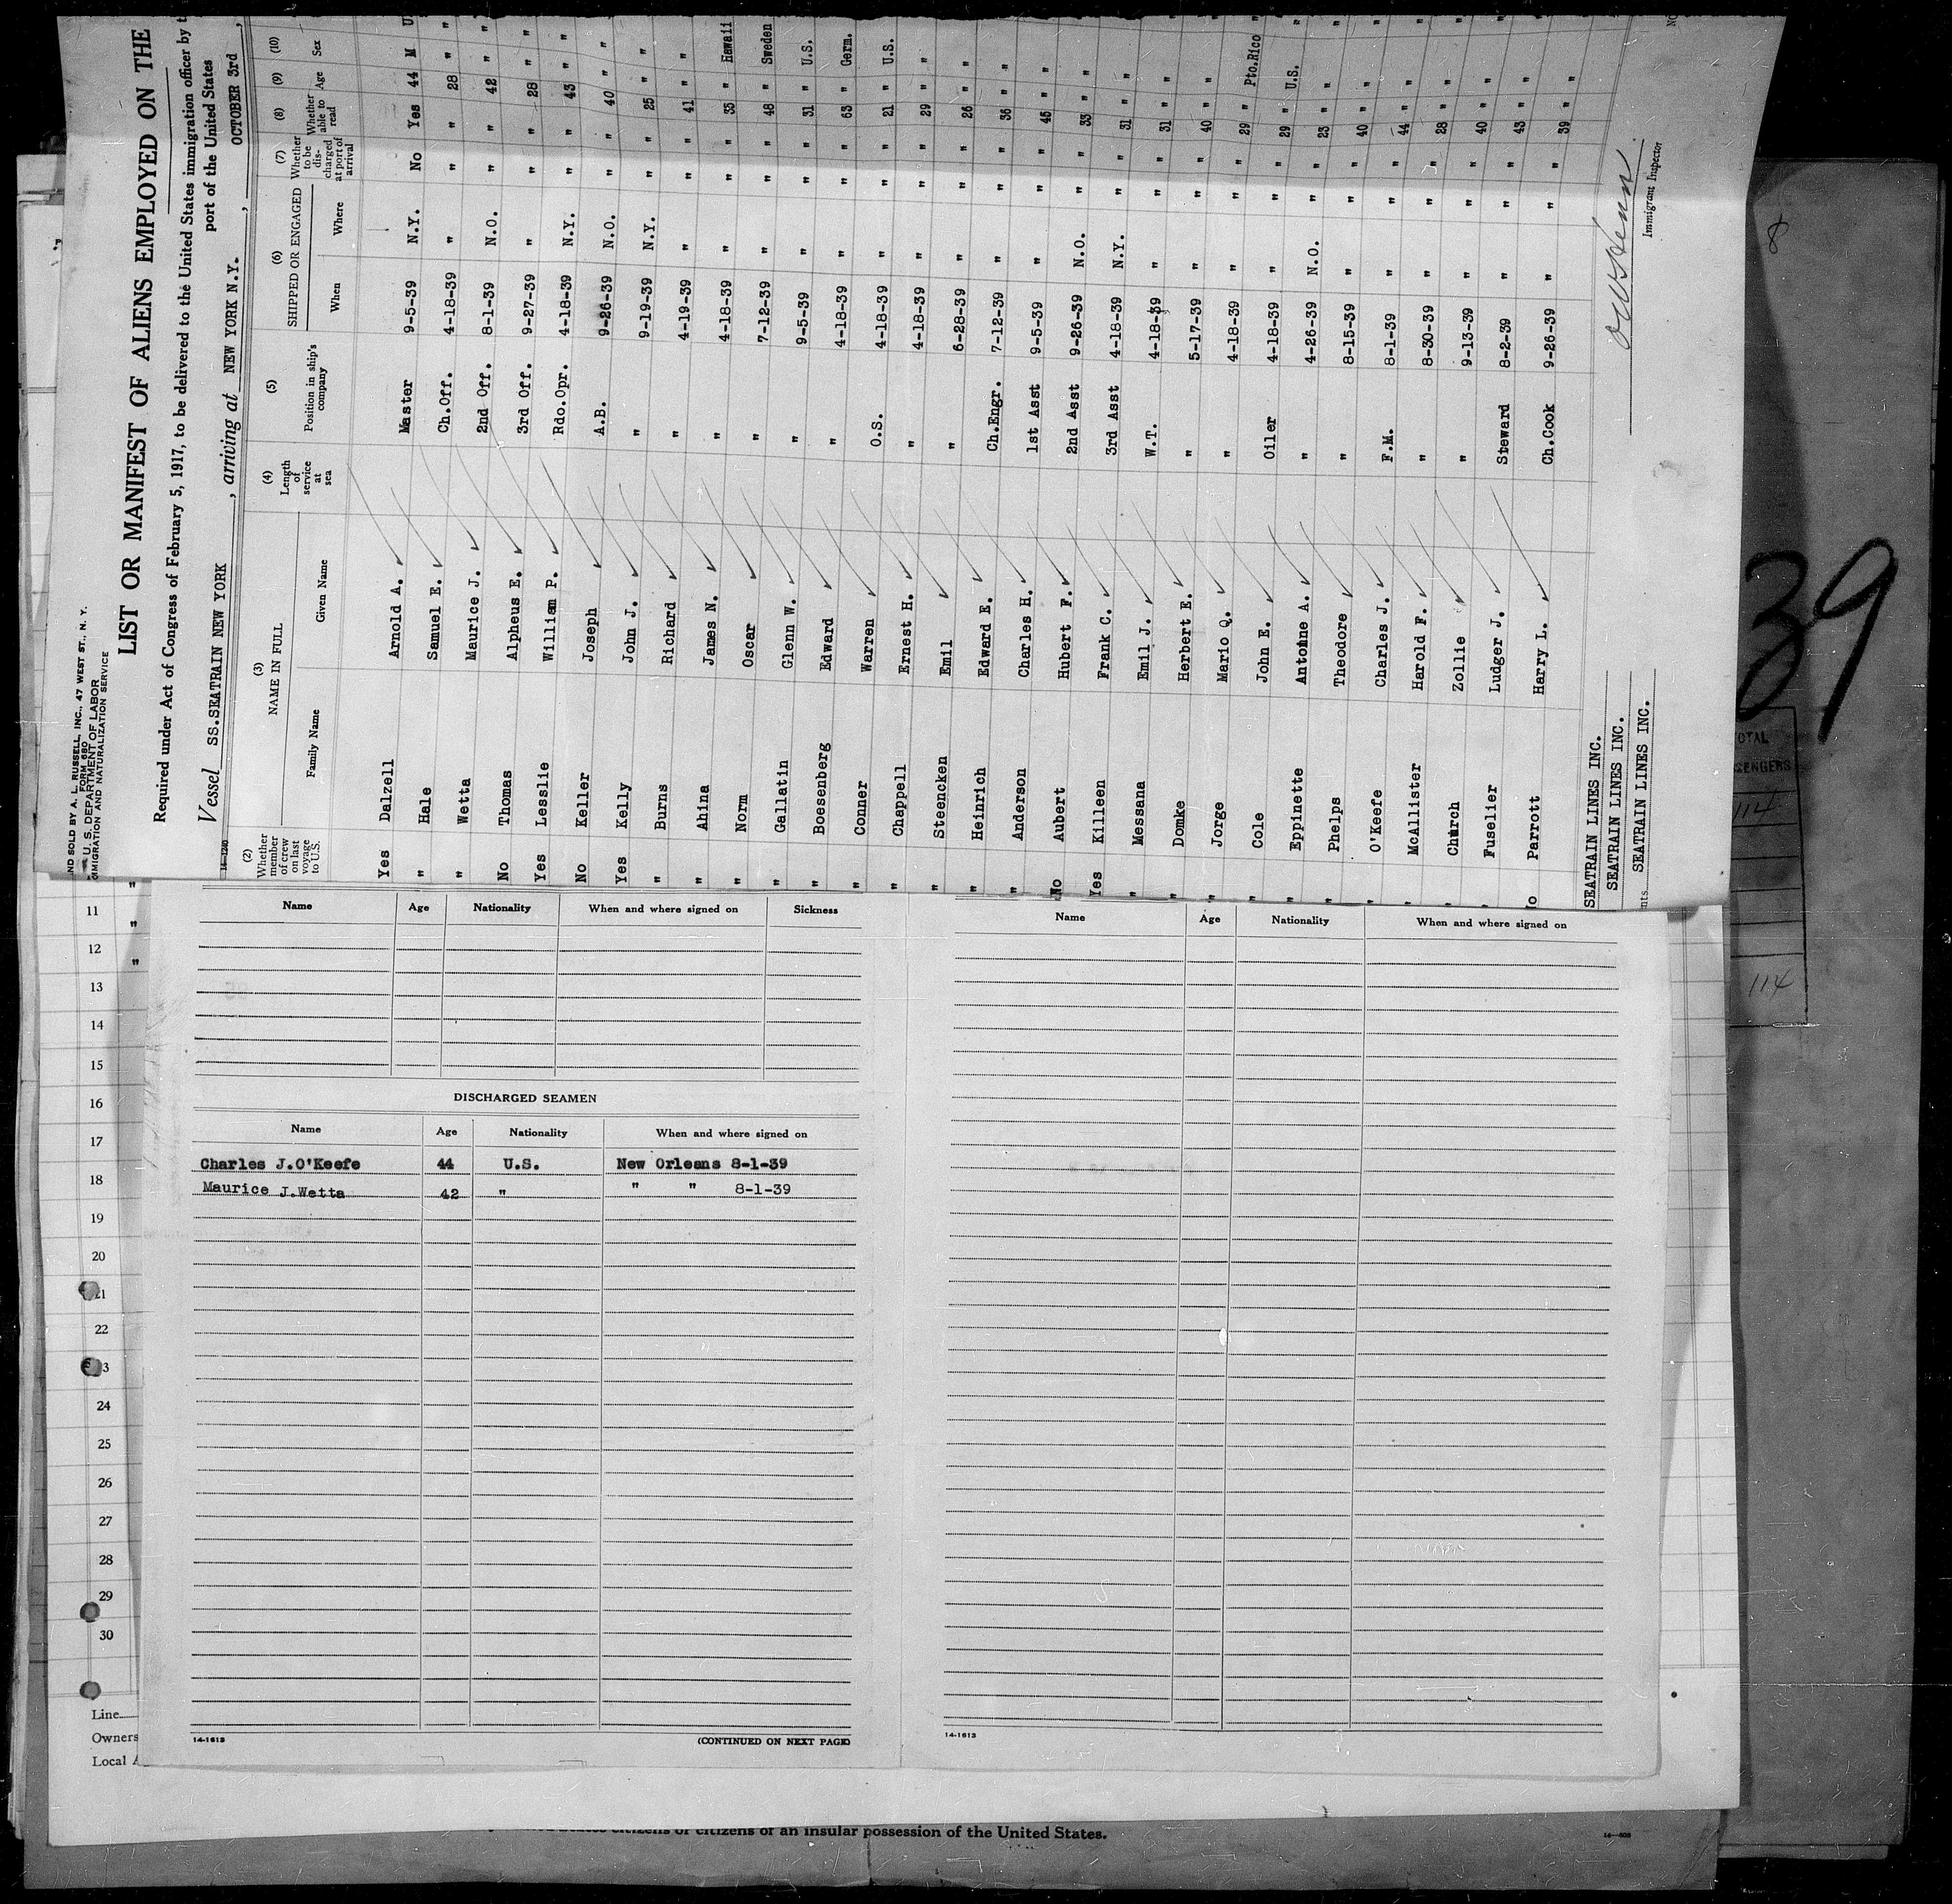 AND SOLD BY A. L. RUSSELL, INC., 47 WEST ST., N. Y.
FORM 680
U. S. DEPARTMENT OF LABOR
IMMIGRATION AND NATURALIZATION SERVICE
LIST OR MANIFEST OF ALIENS EMPLOYED ON THE
Required under Act of Congress of February 5, 1917, to be delivered to the United States immigration officer by
port of the United States
Vessel SS.SEATRAIN NEW YORK, arriving at NEW YORK N.Y., OCTOBER 3rd,
14-1240
(2) (3) (4) (5) (6) (7) (8) (9) (10)
Whether member of crew on last voyage to U.S. NAME IN FULL Length of service at sea Position in ship's company SHIPPED OR ENGAGED Whether to be discharged at port of arrival Whether able to read Age Sex
Family Name Given Name When Where
Yes Dalzell Arnold A. Master 9-5-39 N.Y. No Yes 44 M U
" Hale Samuel E. Ch.Off. 4-18-39 " " " 28 " "
" Wetta Maurice J. 2nd Off. 8-1-39 N.O. " " 42 " "
No Thomas Alpheus E. 3rd Off. 9-27-39 " " " 28 " "
Yes Lesslie William P. Rdo.Opr. 4-18-39 N.Y. " " 43 " "
No Keller Joseph A.B. 9-26-39 N.O. " " 40 " "
Yes Kelly John J. " 9-19-39 N.Y. " " 25 " "
" Burns Richard " 4-19-39 " " " 41 " "
" Ahina James N. " 4-18-39 " " " 33 " Hawaii
" Norm Oscar " 7-12-39 " " " 48 " Sweden
" Gallatin Glenn W. " 9-5-39 " " " 31 " U.S.
" Boesenberg Edward " 4-18-39 " " " 63 " Germ.
" Conner Warren O.S. 4-18-39 " " " 21 " U.S.
" Chappell Ernest H. " 4-18-39 " " " 29 " "
" Steencken Emil " 6-28-39 " " " 26 " "
" Heinrich Edward E. Ch.Engr. 7-12-39 " " " 36 " "
" Anderson Charles H. 1st Asst 9-5-39 " " " 45 " "
No Aubert Hubert F. 2nd Asst 9-26-39 N.O. " " 33 " "
Yes Killeen Frank C. 3rd Asst 4-18-39 N.Y. " " 31 " "
" Messana Emil J. W.T. 4-18-39 " " " 31 " "
" Domke Herbert E. " 5-17-39 " " " 40 " "
" Jorge Mario Q. " 4-18-39 " " " 29 " Pto.Rico
" Cole John E. Oiler 4-18-39 " " " 29 " U.S.
" Eppinette Antoine A. " 4-26-39 N.O. " " 23 " "
" Phelps Theodore " 8-15-39 " " " 40 " "
" O'Keefe Charles J. F.M. 8-1-39 " " " 44 " "
" McAllister Harold F. " 8-30-39 " " " 28 " "
" Church Zollie " 9-13-39 " " " 40 " "
" Fuselier Ludger J. Steward 8-2-39 " " " 43 " "
No Parrott Harry L. Ch.Cook 9-26-39 " " " 39 " "
SEATRAIN LINES INC.
SEATRAIN LINES INC.
SEATRAIN LINES INC.
Immigrant Inspector
39
8
TOTAL
114
114
11 "
12 "
13
14
15
16
17
18
19
20
21
22
24
25
26
27
28
29
30
Line
Owners
Local A
Name Age Nationality When and where signed on Sickness
DISCHARGED SEAMEN
Name Age Nationality When and where signed on
Charles J.O'Keefe 44 U.S. New Orleans 8-1-39
Maurice J.Wetta 42 " " " 8-1-39
14-1613
(CONTINUED ON NEXT PAGE)
Name Age Nationality When and where signed on
14-1613
citizens or citizens of an insular possession of the United States.